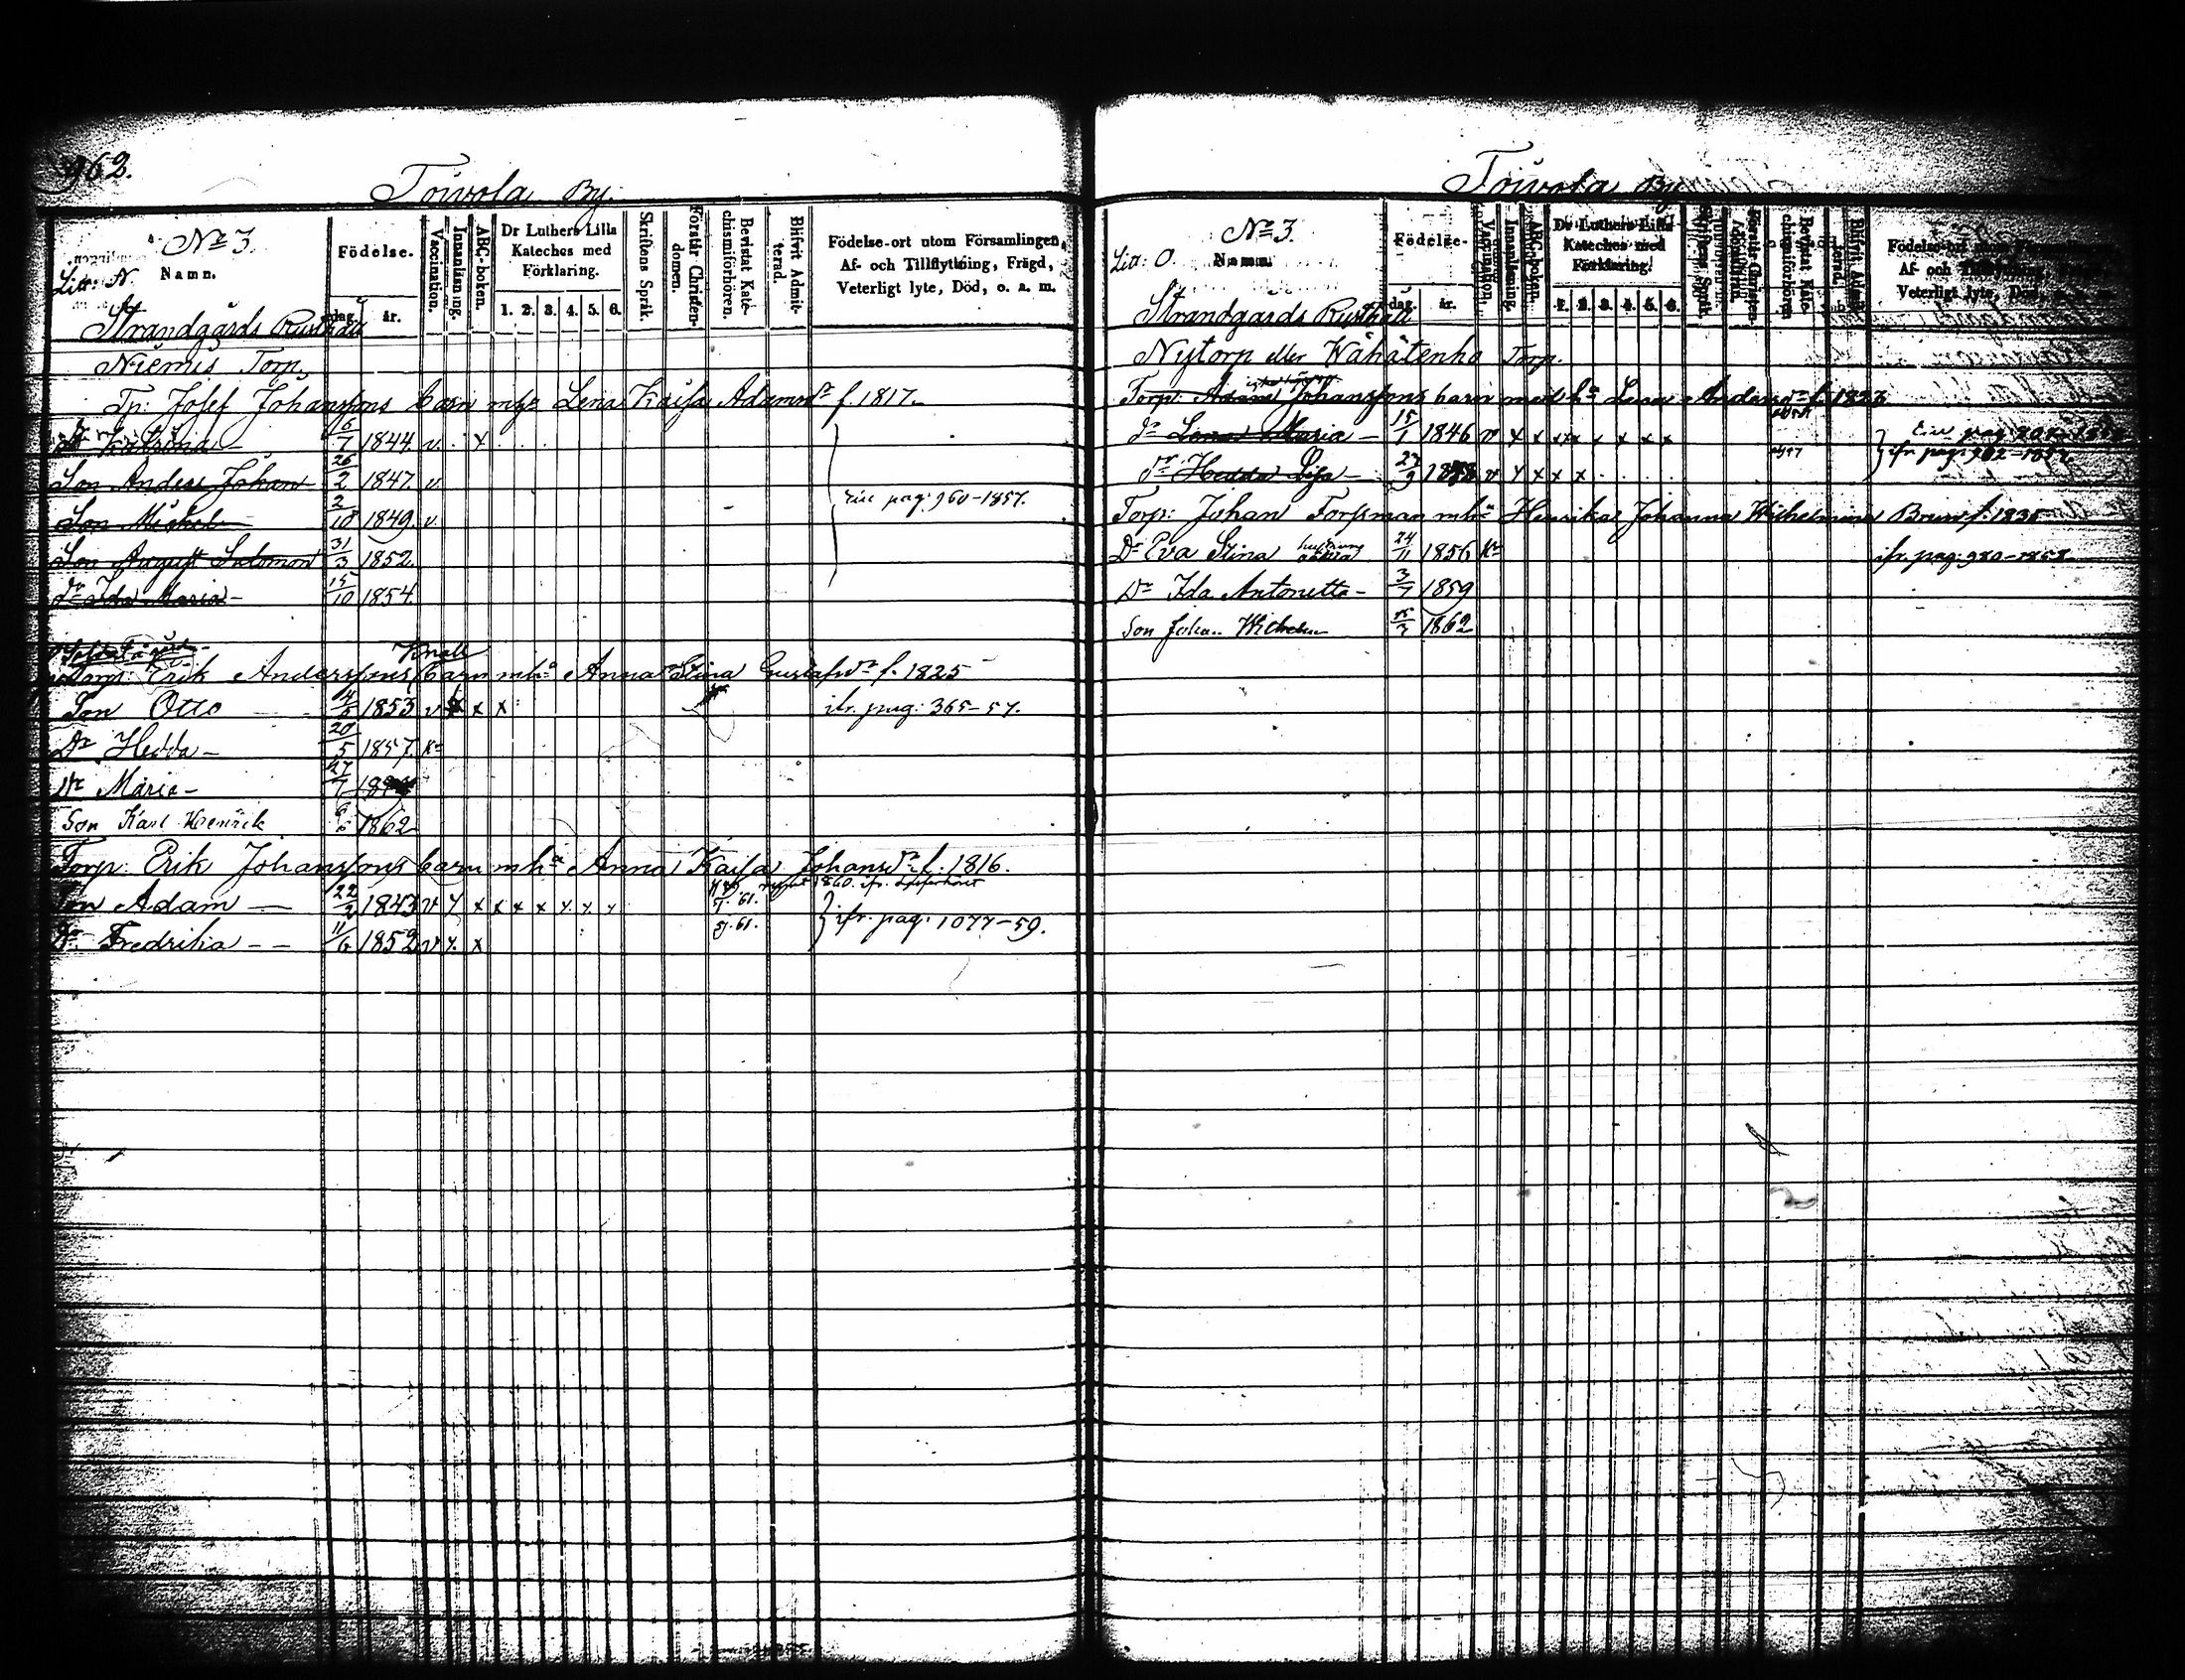 962.
Toivola By.
Nº 3.
Litt: N.
Namn.
Födelse.
dag. år.
Vaccination.
Innanläsning.
ABC-boken.
Dr Luthers Lilla Kateches med Förklaring.
1. 2. 3. 4. 5. 6.
Skriftens Språk.
Förstår Christendomen.
Bevistat Katechismiförhören.
Blifvit Admitterad.
Födelse-ort utom Församlingen, Af- och Tillflyttning, Frägd, Veterligt lyte, Död, o. s. m.
Strandgårds Rusthåll
Niemis Torp,
Tp: Josef Johanssons barn m h:a Lena Kaisa Adamsdr f 1817.
Dr Katrina 6/7 1844. v. x
Son Anders Johan 26/2 1847. v.
Son Michel 2/10 1849. v. pag: 960-1857.
Son August Salomon 31/3 1852.
Dr Ida Maria 15/10 1854.
Torp: Erik Anderssons barn mha Anna Stina Gustafsdr f. 1825
Son Otto 1853 v x x x ifr. pag: 365-57.
Dr Hedda 20/5 1857.
Dr Maria 27/7
Son Karl Henrik 1862
Torp: Erik Johanssons barn mha Anna Kaisa Johansdr f. 1816.
Son Adam 22/2 1843 v x x x x x x x x 61. 1860.
Dr Fredrika 11/6 1852 v x. x 61. } ifr. pag: 1077-59.
Toivola By.
Nº 3.
Litt: O.
Namn.
Födelse.
dag. år.
Vaccination.
Innanläsning.
ABC-boken.
Dr Luthers Lilla Kateches med Förklaring.
1. 2. 3. 4. 5. 6.
Skriftens Språk.
Förstår Christendomen.
Bevistat Katechismiförhören.
Blifvit Admitterad.
Födelse-ort utom Församlingen, Af- och Tillflyttning, Veterligt lyte, Död,
Strandgårds Rusthåll
Nytorp eller Wähätenho Torp.
Torp: Adam Johanssons barn med ha Lena Andersdr f. 1823
Dr Lena Maria 15/1 1846 v x x x x x x x x
Dr Hedda Lisa 27/9 v x x x x } ifr pag: 962-1857.
Torp: Johan Forsman mha Henrika Johanna Wilhelmina f. 1835
Dr Eva Stina 24/11 1856 ifr. pag: 980-1858
Dr Ida Antonetta 3/7 1859
Son Johan Wilhelm 1862